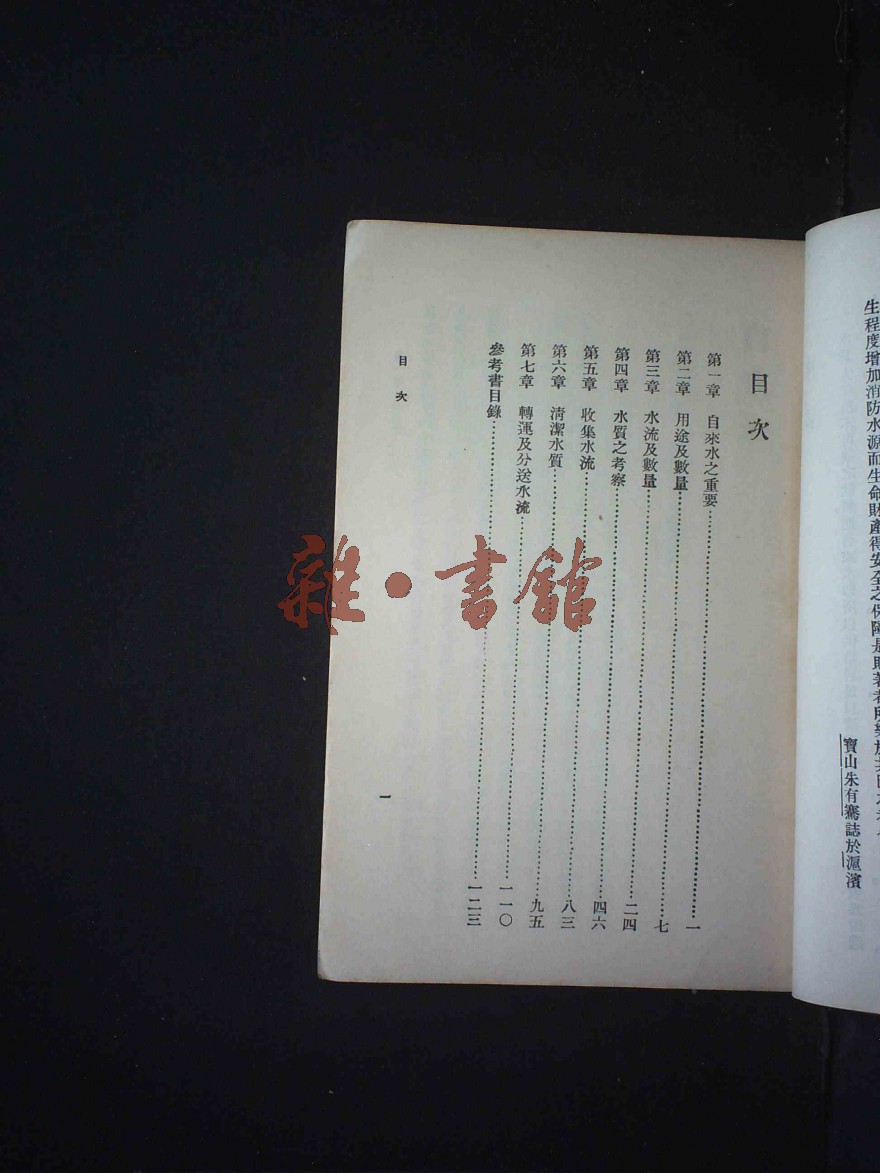 生程度增加消防水源而生命財產得安全之保障是則著者所樂於
寶山朱有騫誌於滬濱
目次
第一章 自來水之重要……一
第二章 用途及數量……七
第三章 水流及數量……二四
第四章 水質之考察……四六
第五章 收集水流……八三
第六章 清潔水質……九五
第七章 轉運及分送水流……一一〇
參考書目錄……一二三
目次
一
雜·書館